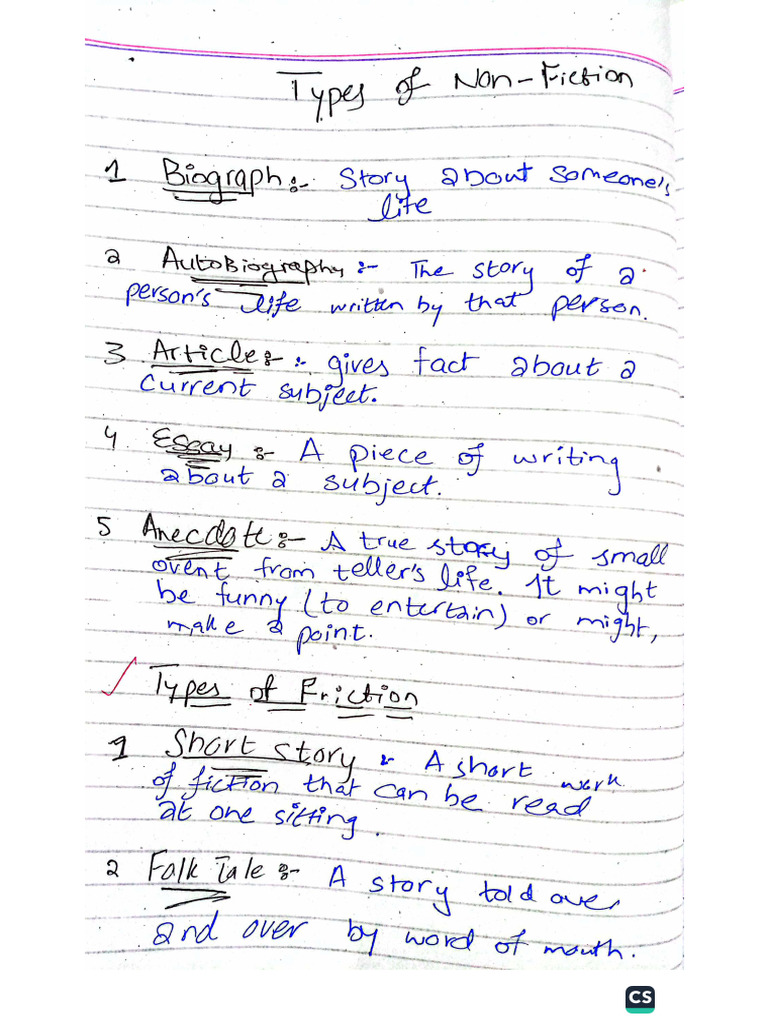 Types of Non-Fiction
1 Biograph:- Story about someone's
life
2 AutoBiography:- The story of a
person's life written by that person.
3 Article:- :- gives fact about a
current subject.
4 Essay :- A piece of writing
about a subject.
5 Anecdote:- A true story of small
event from teller's life. It might
be funny (to entertain) or might,
make a point.
Types of Friction
1 Short story :- A short work
of fiction that can be read
at one sitting.
2 Folk Tale :- A story told over
and over by word of mouth.
CS